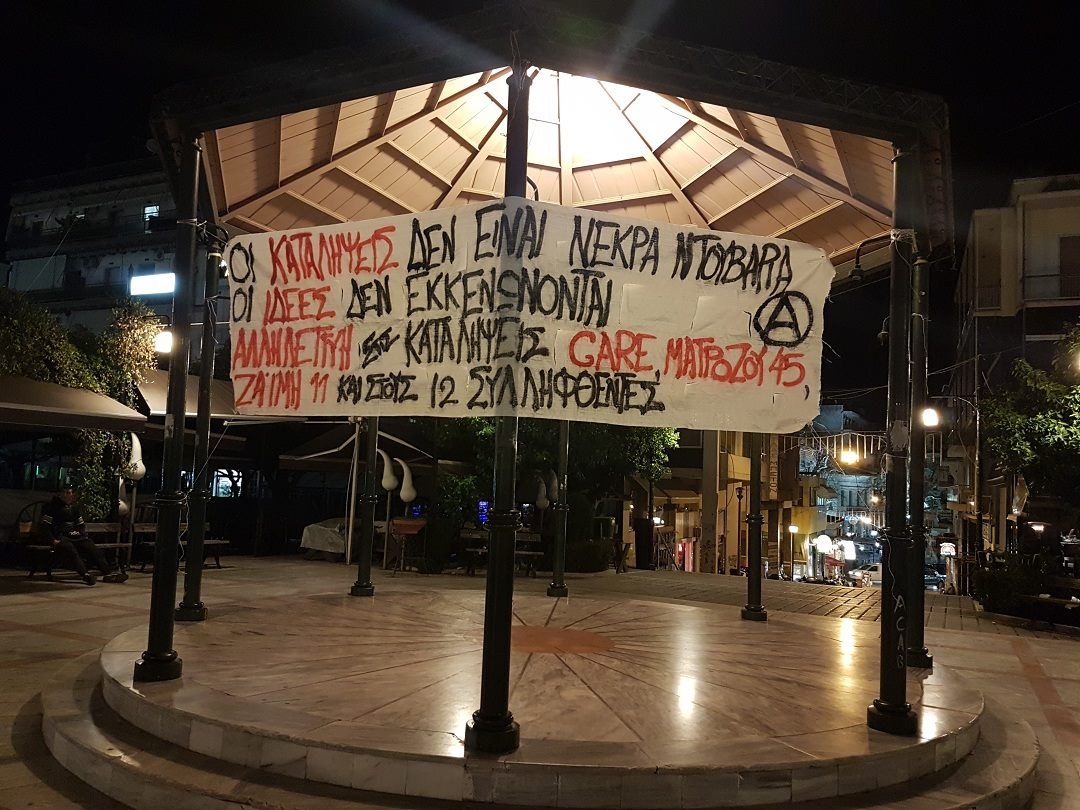 ΟΙ ΚΑΤΑΛΗΨΕΙΣ ΔΕΝ ΕΙΝΑΙ ΝΕΚΡΑ ΝΤΟΥΒΑΡΑ
ΟΙ ΙΔΕΕΣ ΔΕΝ ΕΚΚΕΝΩΝΟΝΤΑΙ
ΑΛΛΗΛΕΓΓΥΗ ΣΤΙΣ ΚΑΤΑΛΗΨΕΙΣ GARE, ΜΑΤΡΟΖΟΥ 45,
ΖΑΪΜΗ 11 ΚΑΙ ΣΤΟΥΣ 12 ΣΥΛΛΗΦΘΕΝΤΕΣ
A
ACAB